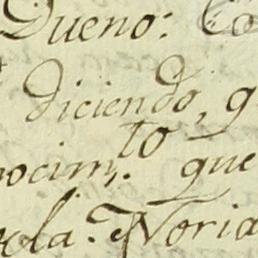 Dueno: Co
diciendo, q
nocim.to que
ela. Noria